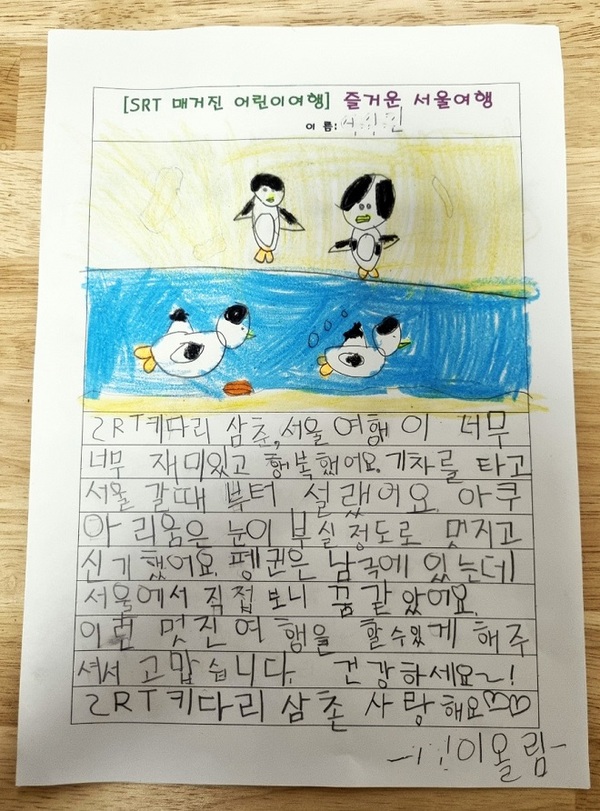 [SRT 매거진 어린이여행] 즐거운 서울여행
이 름:
SRT키다리 삼촌, 서울 여행이 너무
너무 재미있고 행복했어요. 기차를 타고
서울 갈때 부터 설랬어요. 아쿠
아 리움은 눈이 부실정도로 멋지고
신기했어요. 펭귄은 남극에 있는데
서울에서 직접 보니 꿈같았어요.
이런 멋진 여행을 할수있게 해주
셔서 고맙습니다. 건강하세요~!
SRT키다리 삼촌 사랑해요♡♡
이올림-